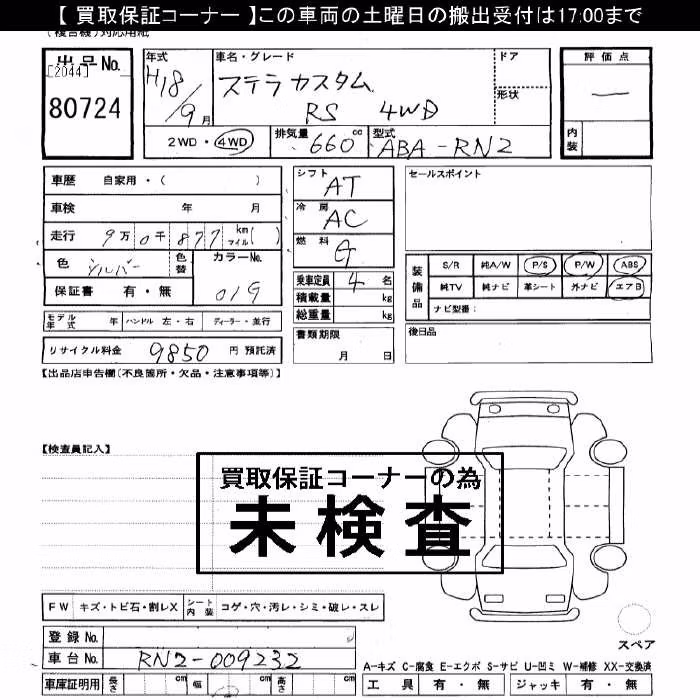 【 買取保証コーナー 】この車両の土曜日の搬出受付は17:00まで
(複合機)対応用紙
出品No.
[2044]
80724
年式
H18/9月
車名・グレード
ステラ カスタム
RS 4WD
ドア
形状
評価点
—
内装
2WD・4WD
排気量 660 cc
型式 ABA-RN2
車歴 自家用・( )
車検 年 月
走行 9万0千877 km マイル( )
色 シルバー 色替 カラーNo. 01G
保証書 有・無
モデル年式 年 ハンドル 左・右 ディーラー・並行
リサイクル料金 9850 円 預託済
シフト AT
冷房 AC
燃料 G
乗車定員 4 名
積載量 kg
総重量 kg
書類期限
月 日
セールスポイント
装備品
S/R 純A/W P/S P/W ABS
純TV 純ナビ 革シート 外ナビ エアB
ナビ型番:
後日品
【出品店申告欄(不良箇所・欠品・注意事項等)】
【検査員記入】
買取保証コーナーの為
未検査
FW キズ・トビ石・割レX シート内装 コゲ・穴・汚レ・シミ・破レ・スレ
登録No.
車台No. RN2-009232
車庫証明用 長さ cm 幅 cm 高さ cm
スペア
A-キズ C-腐食 E-エクボ S-サビ U-凹ミ W-補修 XX-交換済
工具 有・無 ジャッキ 有・無